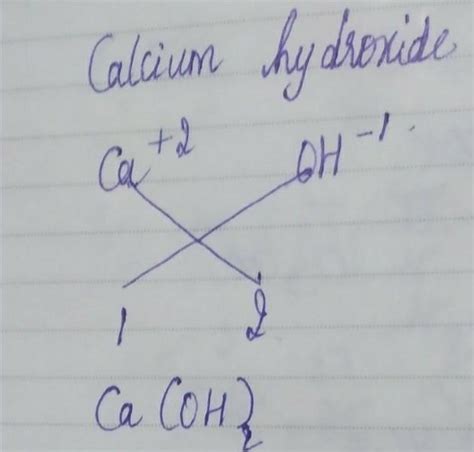 Calcium hydroxide
Ca⁺² OH⁻¹.
1 2
Ca (OH)₂